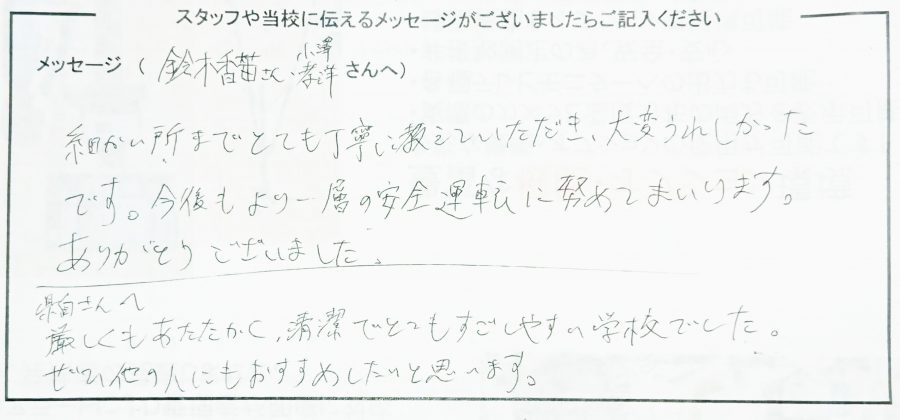 スタッフや当校に伝えるメッセージがございましたらご記入ください
メッセージ ( 鈴木香苗さん・小澤孝洋さんへ)
細かい所までとても丁寧に教えていただき、大変うれしかった
です。今後もより一層の安全運転に努めてまいります。
ありがとうございました。
さんへ
厳しくもあたたかく、清潔でとてもすごしやすい学校でした。
ぜひ他の人にもおすすめしたいと思います。